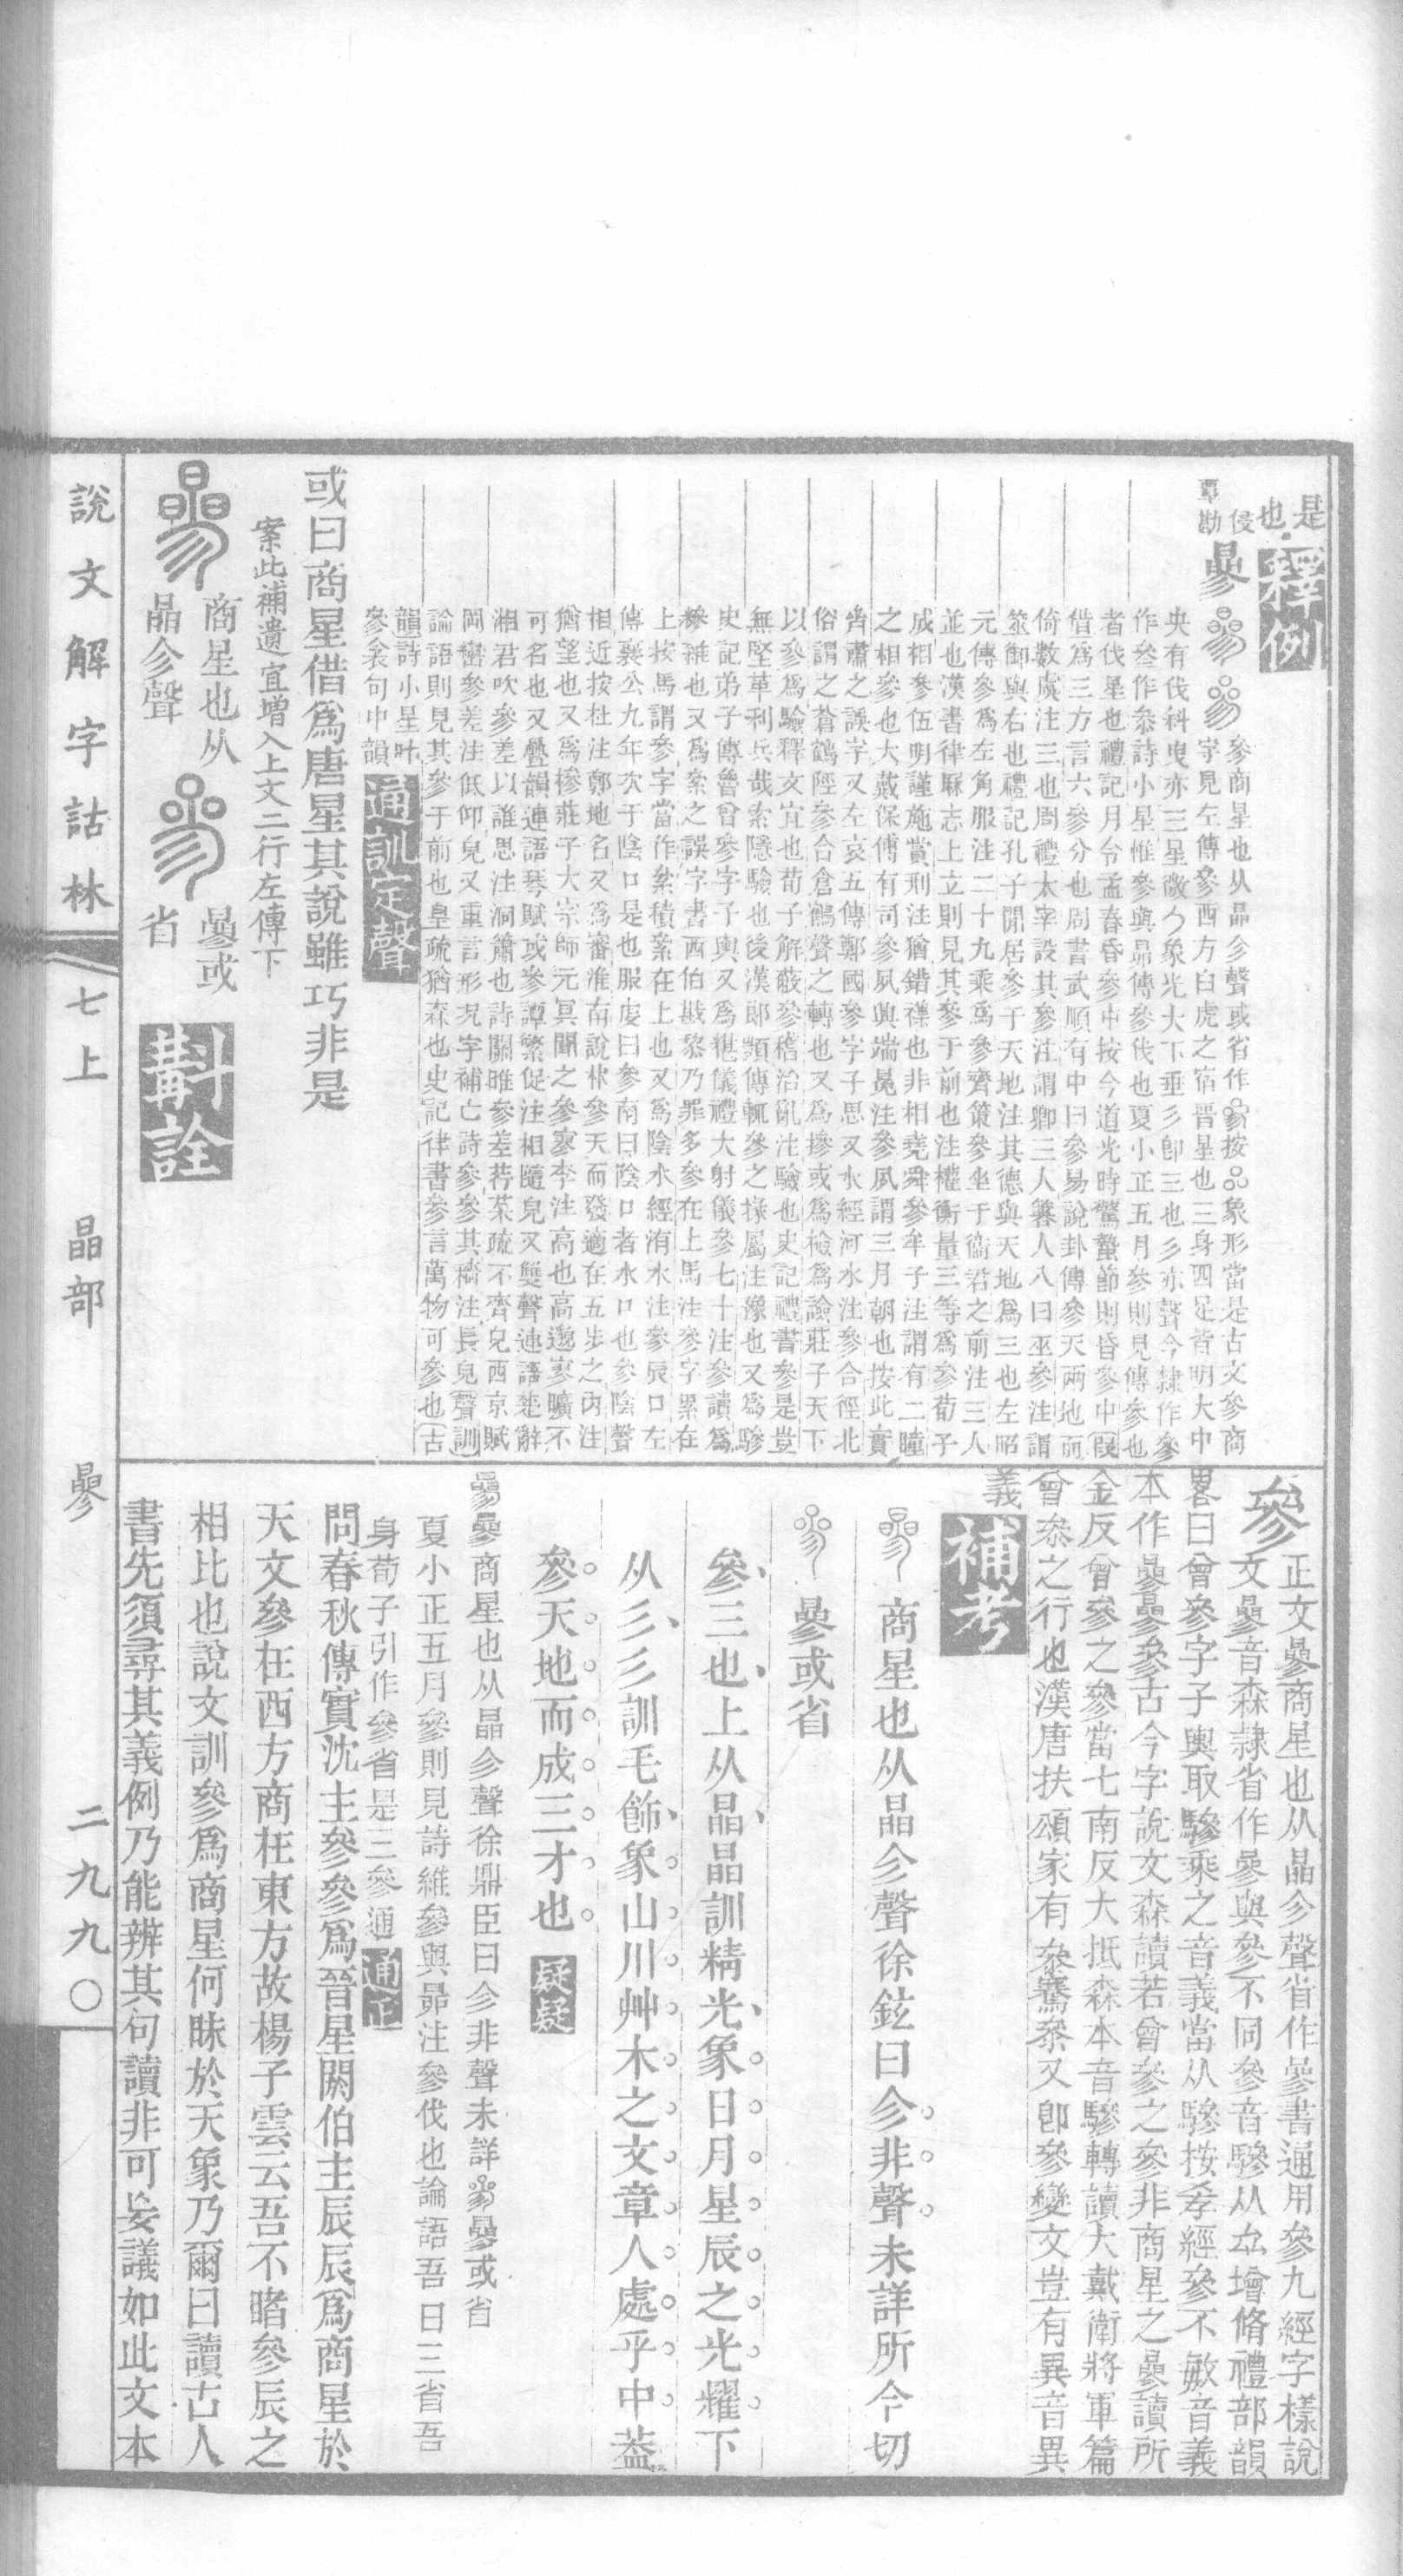 是
也 釋例
覃侵勘
曑 參商星也从晶㐱聲或省作參按晶象形當是古文參商
字見左傳參西方白虎之宿晉星也三身四足皆明大中
央有伐科曳亦三星㣲象光大下垂彡卽三也彡亦聲今隸作參
作叅作叅詩小星惟參與昴傳參伐也夏小正五月參則見傳參也
者伐星也禮記月令孟春昏參中按今道光時驚蟄節則昏參中叚
借爲三方言六參分也周書武順有中曰參易說卦傳參天兩地而
倚數虞注三也周禮太宰設其參注謂卿三人簭人八曰巫參注謂
筮御與右也禮記孔子閒居參于天地注其德與天地爲三也左昭
元傳參爲左角服注二十九乘爲參齊策參坐于衞君之前注三人
並也漢書律厤志上立則見其參于前也注權衡量三等爲參荀子
成相參伍明謹施賞刑注猶錯襍也非相堯舜參牟子注謂有二瞳
之相參也大戴保傅有司參夙興端冕注參夙謂三月朝也按此實
齊肅之誤字又左哀五傳鄭國參字子思又水經河水注參合徑北
俗謂之蒼鶴陘參合倉鶴聲之轉也又爲摻或爲檢爲譣莊子天下
以參爲驗釋文宜也荀子解蔽參稽治亂注驗也史記禮書參是豈
無堅革利兵哉索隱驗也後漢郎顗傳輒參之掾屬注也又爲驂
史記弟子傳魯曾參字子輿又爲糂儀禮大射儀參七十注參讀爲
糝雜也又爲絫之誤字書西伯戡黎乃罪多參在上馬注參字累在
上按馬謂參字當作絫積絫在上也又爲陰水經洧水注參辰口左
傳襄公九年次于陰口是也服虔曰參南曰陰口者水口也參陰聲
相近按杜注鄭地名又爲審淮南說林參天而發適在五步之內注
猶望也又爲槮莊子大宗師元冥聞之參寥李注高也高邈寥曠不
可名也又疊韻連語琴賦或參譚繁促注相隨皃又雙聲連語楚辭
湘君吹參差以誰思注洞簫也詩關雎參差荇菜疏不齊皃西京賦
岡巒參差注低仰皃又重言形況字補亡詩參參其穡注長皃聲訓
論語則見其參于前也皇疏猶森也史記律書參言萬物可參也古
韻詩小星叶
參衾句中韻 通訓定聲
或曰商星借爲唐星其說雖巧非是
案此補遺宜增入上文二行左傳下
曑 商星也从
晶㐱聲 參 曑或
省 斠詮
參 正文曑商星也从晶㐱聲省作參書通用參九經字樣說
文曑音森隸省作參與參不同參音驂从厽增脩禮部韻
畧曰曾參字子輿取驂乘之音義當从驂按孝經參不敏音義
本作曑曑參古今字說文森讀若曾參之參非商星之曑讀所
金反曾參之參當七南反大抵森本音驂轉讀大戴衛將軍篇
曾叅之行也漢唐扶頌家有叅騫叅又卽參變文豈有異音異
義 補考
曑 商星也从晶㐱聲徐鉉曰㐱非聲未詳所今切
參 曑或省
參三也上从晶晶訓精光象日月星辰之光耀下
从彡彡訓毛飾象山川艸木之文章人處乎中葢
參天地而成三才也 疑疑
曑曑商星也从晶㐱聲徐鼎臣曰㐱非聲未詳參曑或省
夏小正五月參則見詩維參與昴注參伐也論語吾日三省吾
身荀子引作參省是三參通 通正
問春秋傳實沈主參參爲晉星閼伯主辰辰爲商星於
天文參在西方商在東方故楊子雲云吾不睹參辰之
相比也說文訓參爲商星何昧於天象乃爾曰讀古人
書先須尋其義例乃能辨其句讀非可妄議如此文本
說文解字詁林 七上 晶部 曑 二九九〇